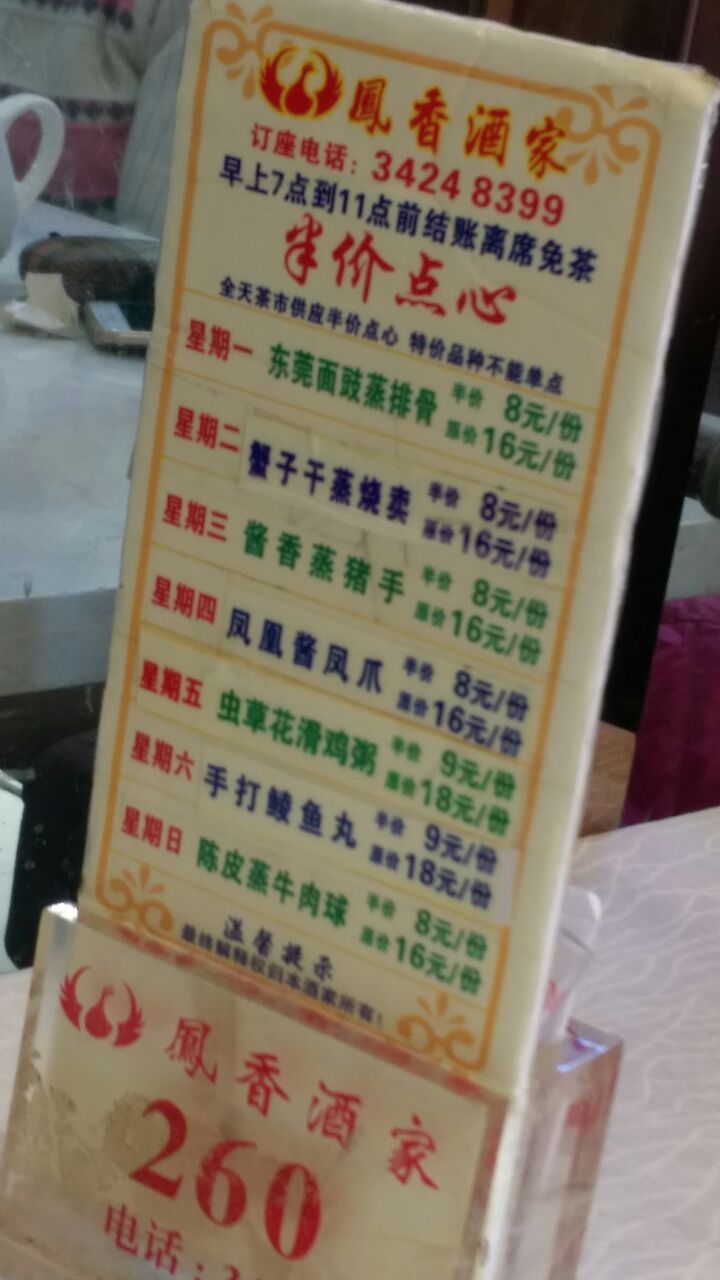 鳳香酒家
订座电话：3424 8399
早上7点到11点前结账离席免茶
半价点心
全天茶市供应半价点心 特价品种不能单点
星期一 东莞面豉蒸排骨 半价 8元/份
原价 16元/份
星期二 蟹子干蒸烧卖 半价 8元/份
原价 16元/份
星期三 酱香蒸猪手 半价 8元/份
原价 16元/份
星期四 凤凰酱凤爪 半价 8元/份
原价 16元/份
星期五 虫草花滑鸡粥 半价 9元/份
原价 18元/份
星期六 手打鲮鱼丸 半价 9元/份
原价 18元/份
星期日 陈皮蒸牛肉球 半价 8元/份
原价 16元/份
温馨提示
最终解释权归本酒家所有！
鳳香酒家
260
电话：